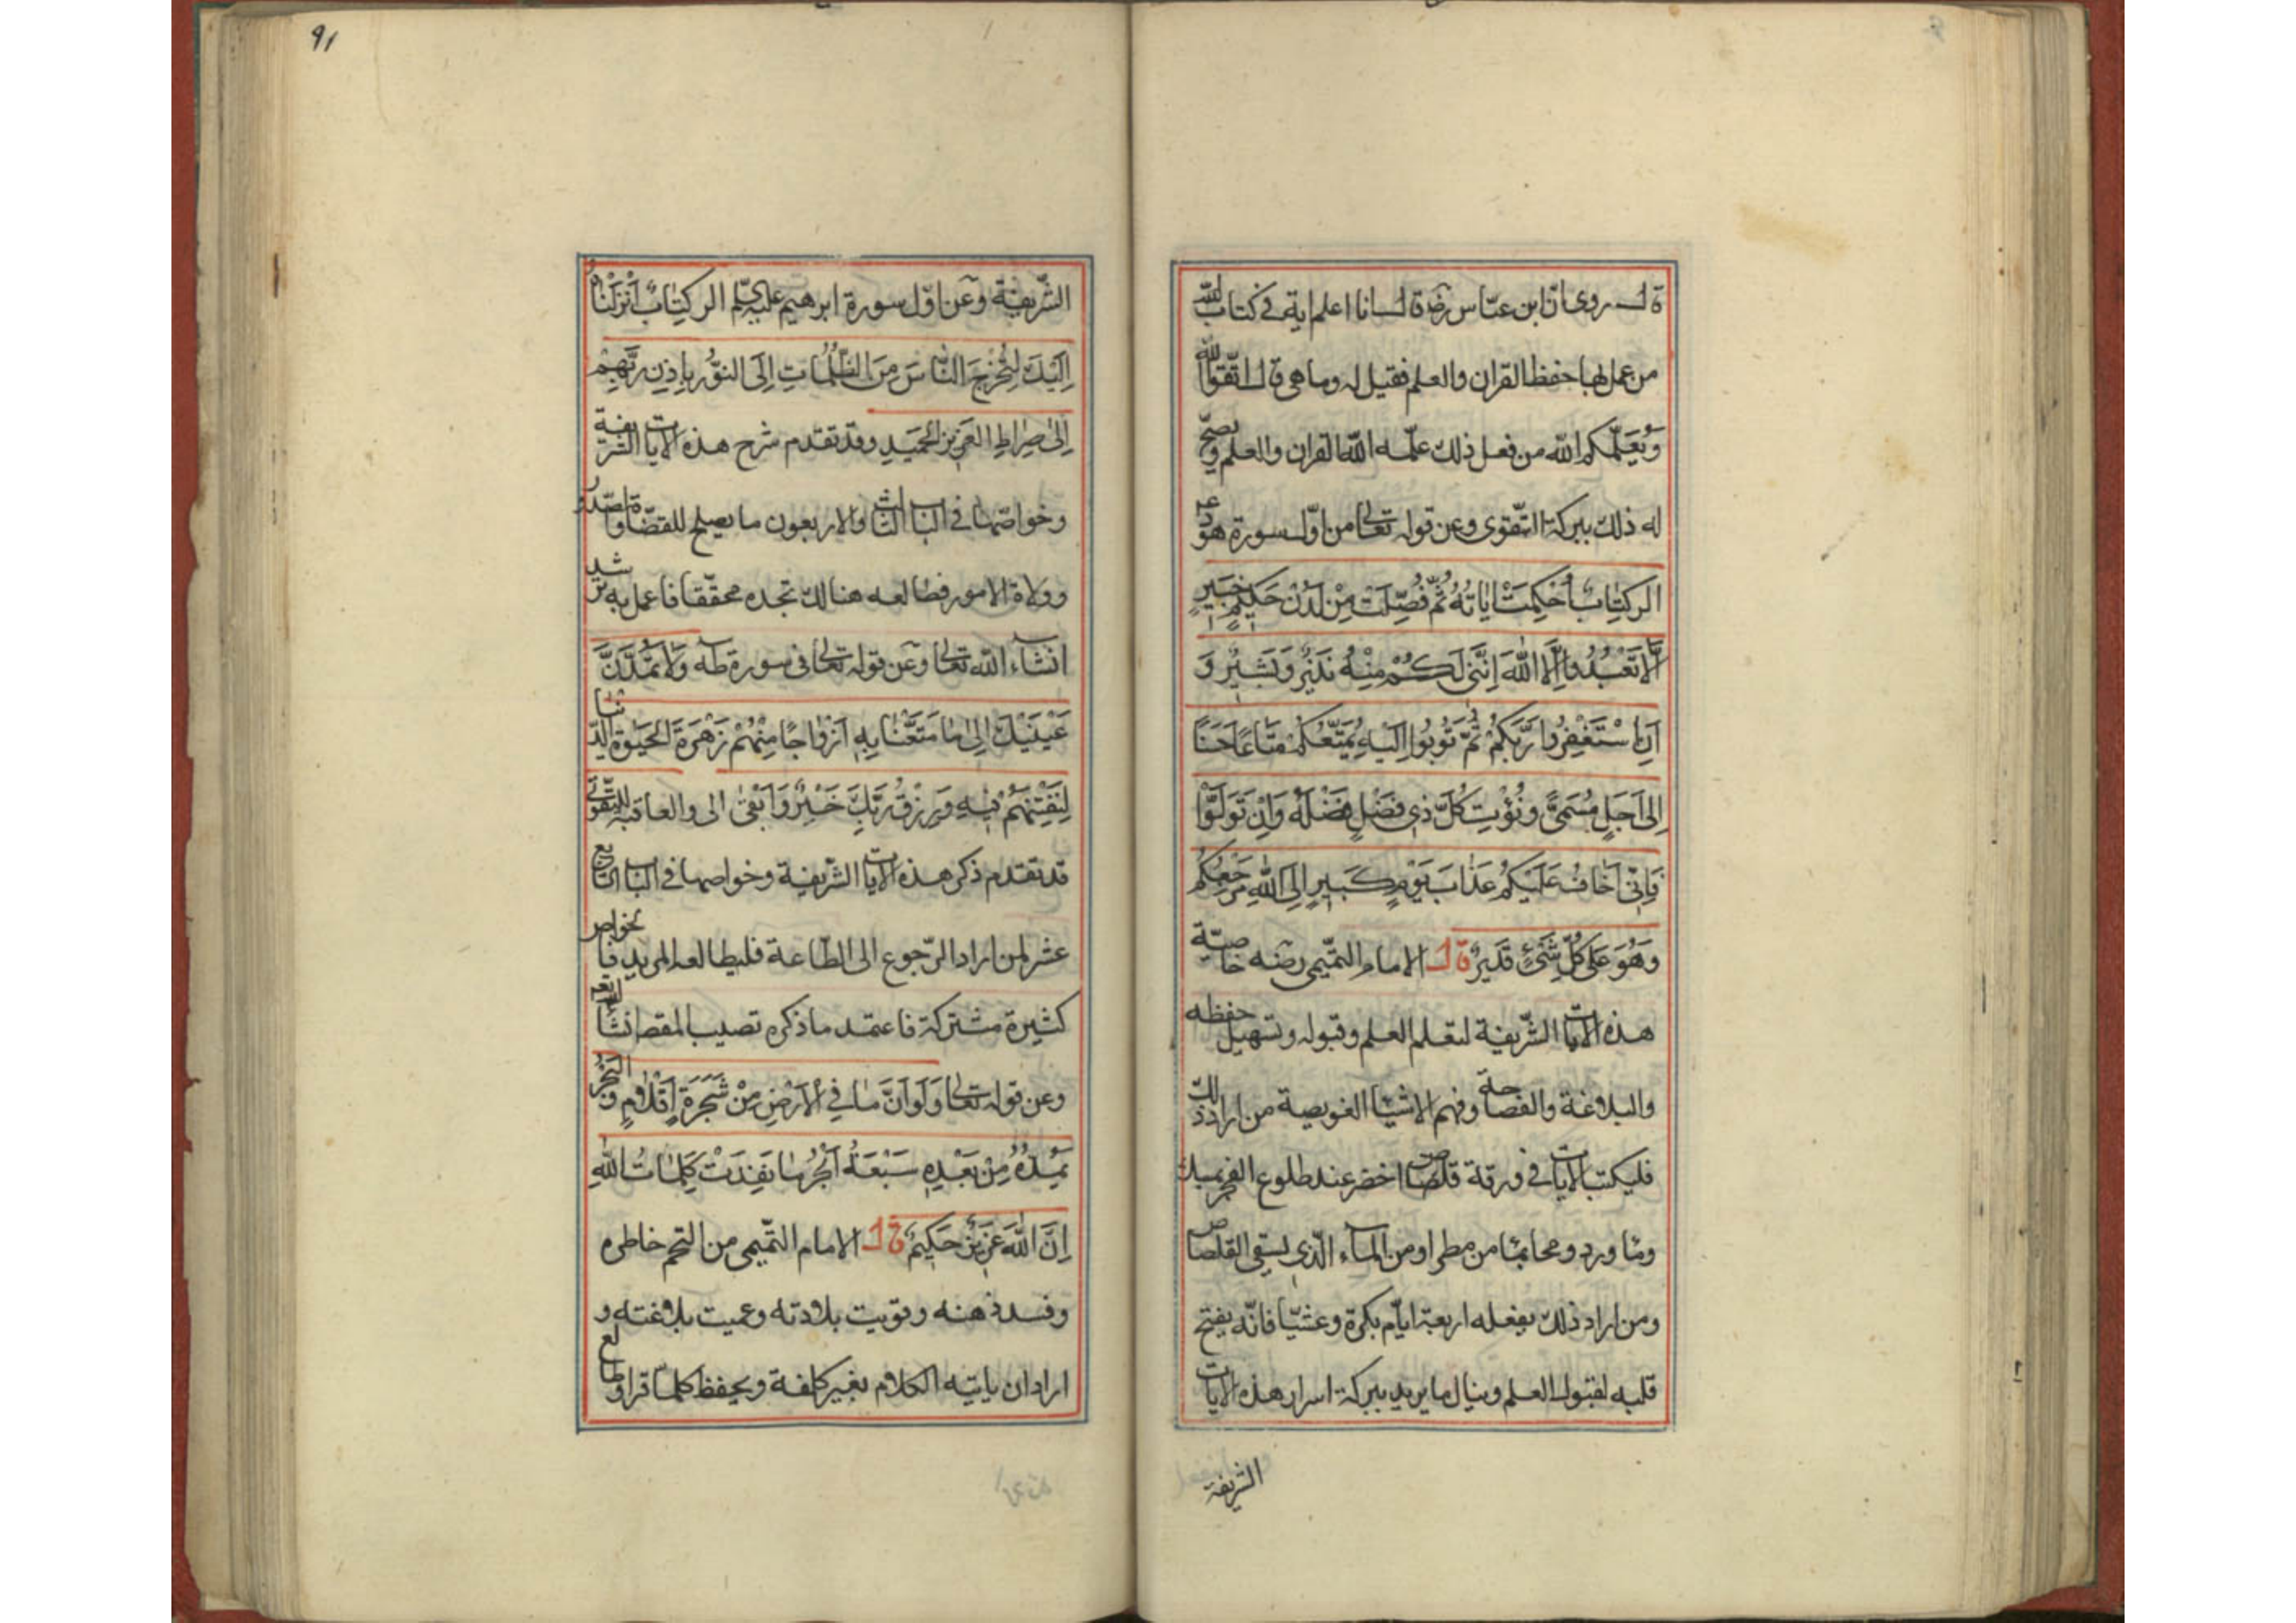 قال روى ان ابن عباس رضه قال انا اعلم اية فى كتاب الله
من عمل بها حفظ القران والعلم فقيل له وما هى قال اتقوا الله
وَيُعَلِّمُكُم الله من فعل ذلك علمه الله القران والعلم ويصح
له ذلك ببركة التقوى وعن قوله تعالى من اول سورة هود عم
الر كِتَابٌ اُحْكِمَتْ ايَاتُهُ ثُمَّ فُصِّلَتْ مِنْ لَدُنْ حَكِيمٍ خَبِيرٍ
اَلَّا تَعْبُدُوا اِلَّا اللهَ اِنَّنِى لَكُمْ مِنْهُ نَذِيرٌ وَبَشِيرٌ وَ
اَنِ اسْتَغْفِرُوا رَبَّكُمْ ثُمَّ تُوبُوا اِلَيْهِ يُمَتِّعْكُمْ مَتَاعًا حَسَنًا
اِلى اَجَلٍ مُسَمًّى وَيُؤْتِ كُلَّ ذِى فَضْلٍ فَضْلَهُ وَاِنْ تَوَلَّوْا
فَاِنِّى اَخَافُ عَلَيْكُمْ عَذَابَ يَوْمٍ كَبِيرٍ اِلَى اللهِ مَرْجِعُكُمْ
وَهُوَ عَلَى كُلِّ شَىْءٍ قَدِيرٌ قال الامام التميمى رضه خاصية
هذه الايات الشريفة لتعلم العلم وقبوله وتسهيل حفظه
والبلاغة والفصاحة وفهم الاشيا الغويصة من اراد ذلك
فليكتب الايات فى ورقة قلقاص اخضر عند طلوع الفجر بمسك
وما ورد ومحا بما من مطر او من الماء الذى يسقى القلقاص
ومن اراد ذلك يفعله اربعة ايام بكرة وعشيا فانه يفتح
قلبه لقبول العلم وينال ما يريد ببركة اسرار هذه الايات
الشريفة
91
الشريفة وعن اول سورة ابرهيم عليه السلم الر كِتَابٌ اَنْزَلْنَاهُ
اِلَيْكَ لِتُخْرِجَ النَّاسَ مِنَ الظُّلُمَاتِ اِلَى النُّورِ بِاِذْنِ رَبِّهِمْ
اِلَى صِرَاطِ العَزِيزِ الحَمِيدِ وقد تقدم شرح هذه الايات الشريفة
وخواصها فى الباب الثالث والاربعون ما يصلح للقضاة والصدور
وولاة الامور فطالعه هنالك تجده محققا فاعمل به ترشد
انشاء الله تعالى وعن قوله تعالى فى سورة طه وَلَا تَمُدَّنَّ
عَيْنَيْكَ اِلى مَا مَتَّعْنَا بِهِ اَزْوَاجًا مِنْهُمْ زَهْرَةَ الحَيَوةِ الدُّنْيَا
لِنَفْتِنَهُمْ فِيهِ وَرِزْقُ رَبِّكَ خَيْرٌ وَاَبْقَى الى والعاقبة للتقوى
قد تقدم ذكر هذه الايات الشريفة وخواصها فى الباب التاسع
عشر لمن اراد الرجوع الى الطاعة فليطالعه المريد فالخواص
كثيرة مشتركة فاعتمد ما ذكره تصيب المقصد انشا الله تعالى
وعن قوله تعالى وَلَوْ اَنَّ مَا فِى الاَرْضِ مِنْ شَجَرَةٍ اَقْلَامٌ وَالبَحْرُ
يَمُدُّهُ مِنْ بَعْدِهِ سَبْعَةُ اَبْحُرٍ مَا نَفِدَتْ كَلِمَاتُ اللهِ
اِنَّ اللهَ عَزِيزٌ حَكِيمٌ قال الامام التميمى من التحم خاطره
وفسد ذهنه وقويت بلادته وعميت بلاغته و
اراد ان ياتيه الكلام بغير كلفة ويحفظ كلما قرا وطالع